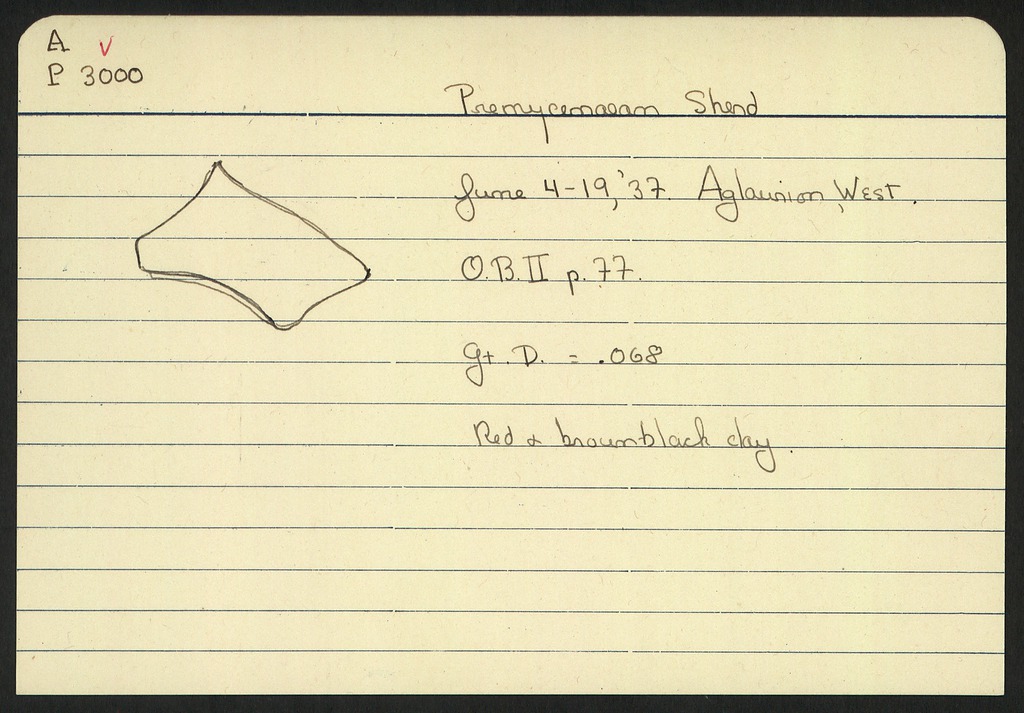 A V
P 3000
Premycenaean Sherd
June 4-19, '37. Aglaurion, West.
O.B. II p. 77.
Gt. D. = .068
Red & brownblack clay.